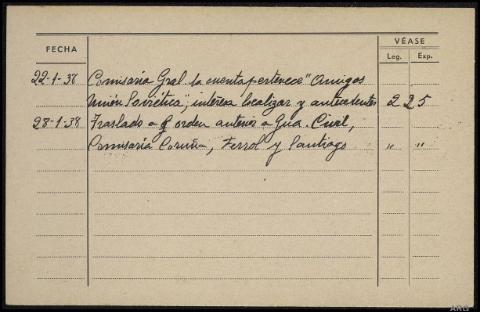 FECHA
VÉASE
Leg. Exp.
22-1-38 Comisaría Gral. la cuenta pertenece "Amigos
Unión Soviética"; interesa localizar y antecedentes 2 25
28-1-38 Traslado orden anterior a Gua. Civil,
Comisaría Coruña, Ferrol y Santiago " "
ARG